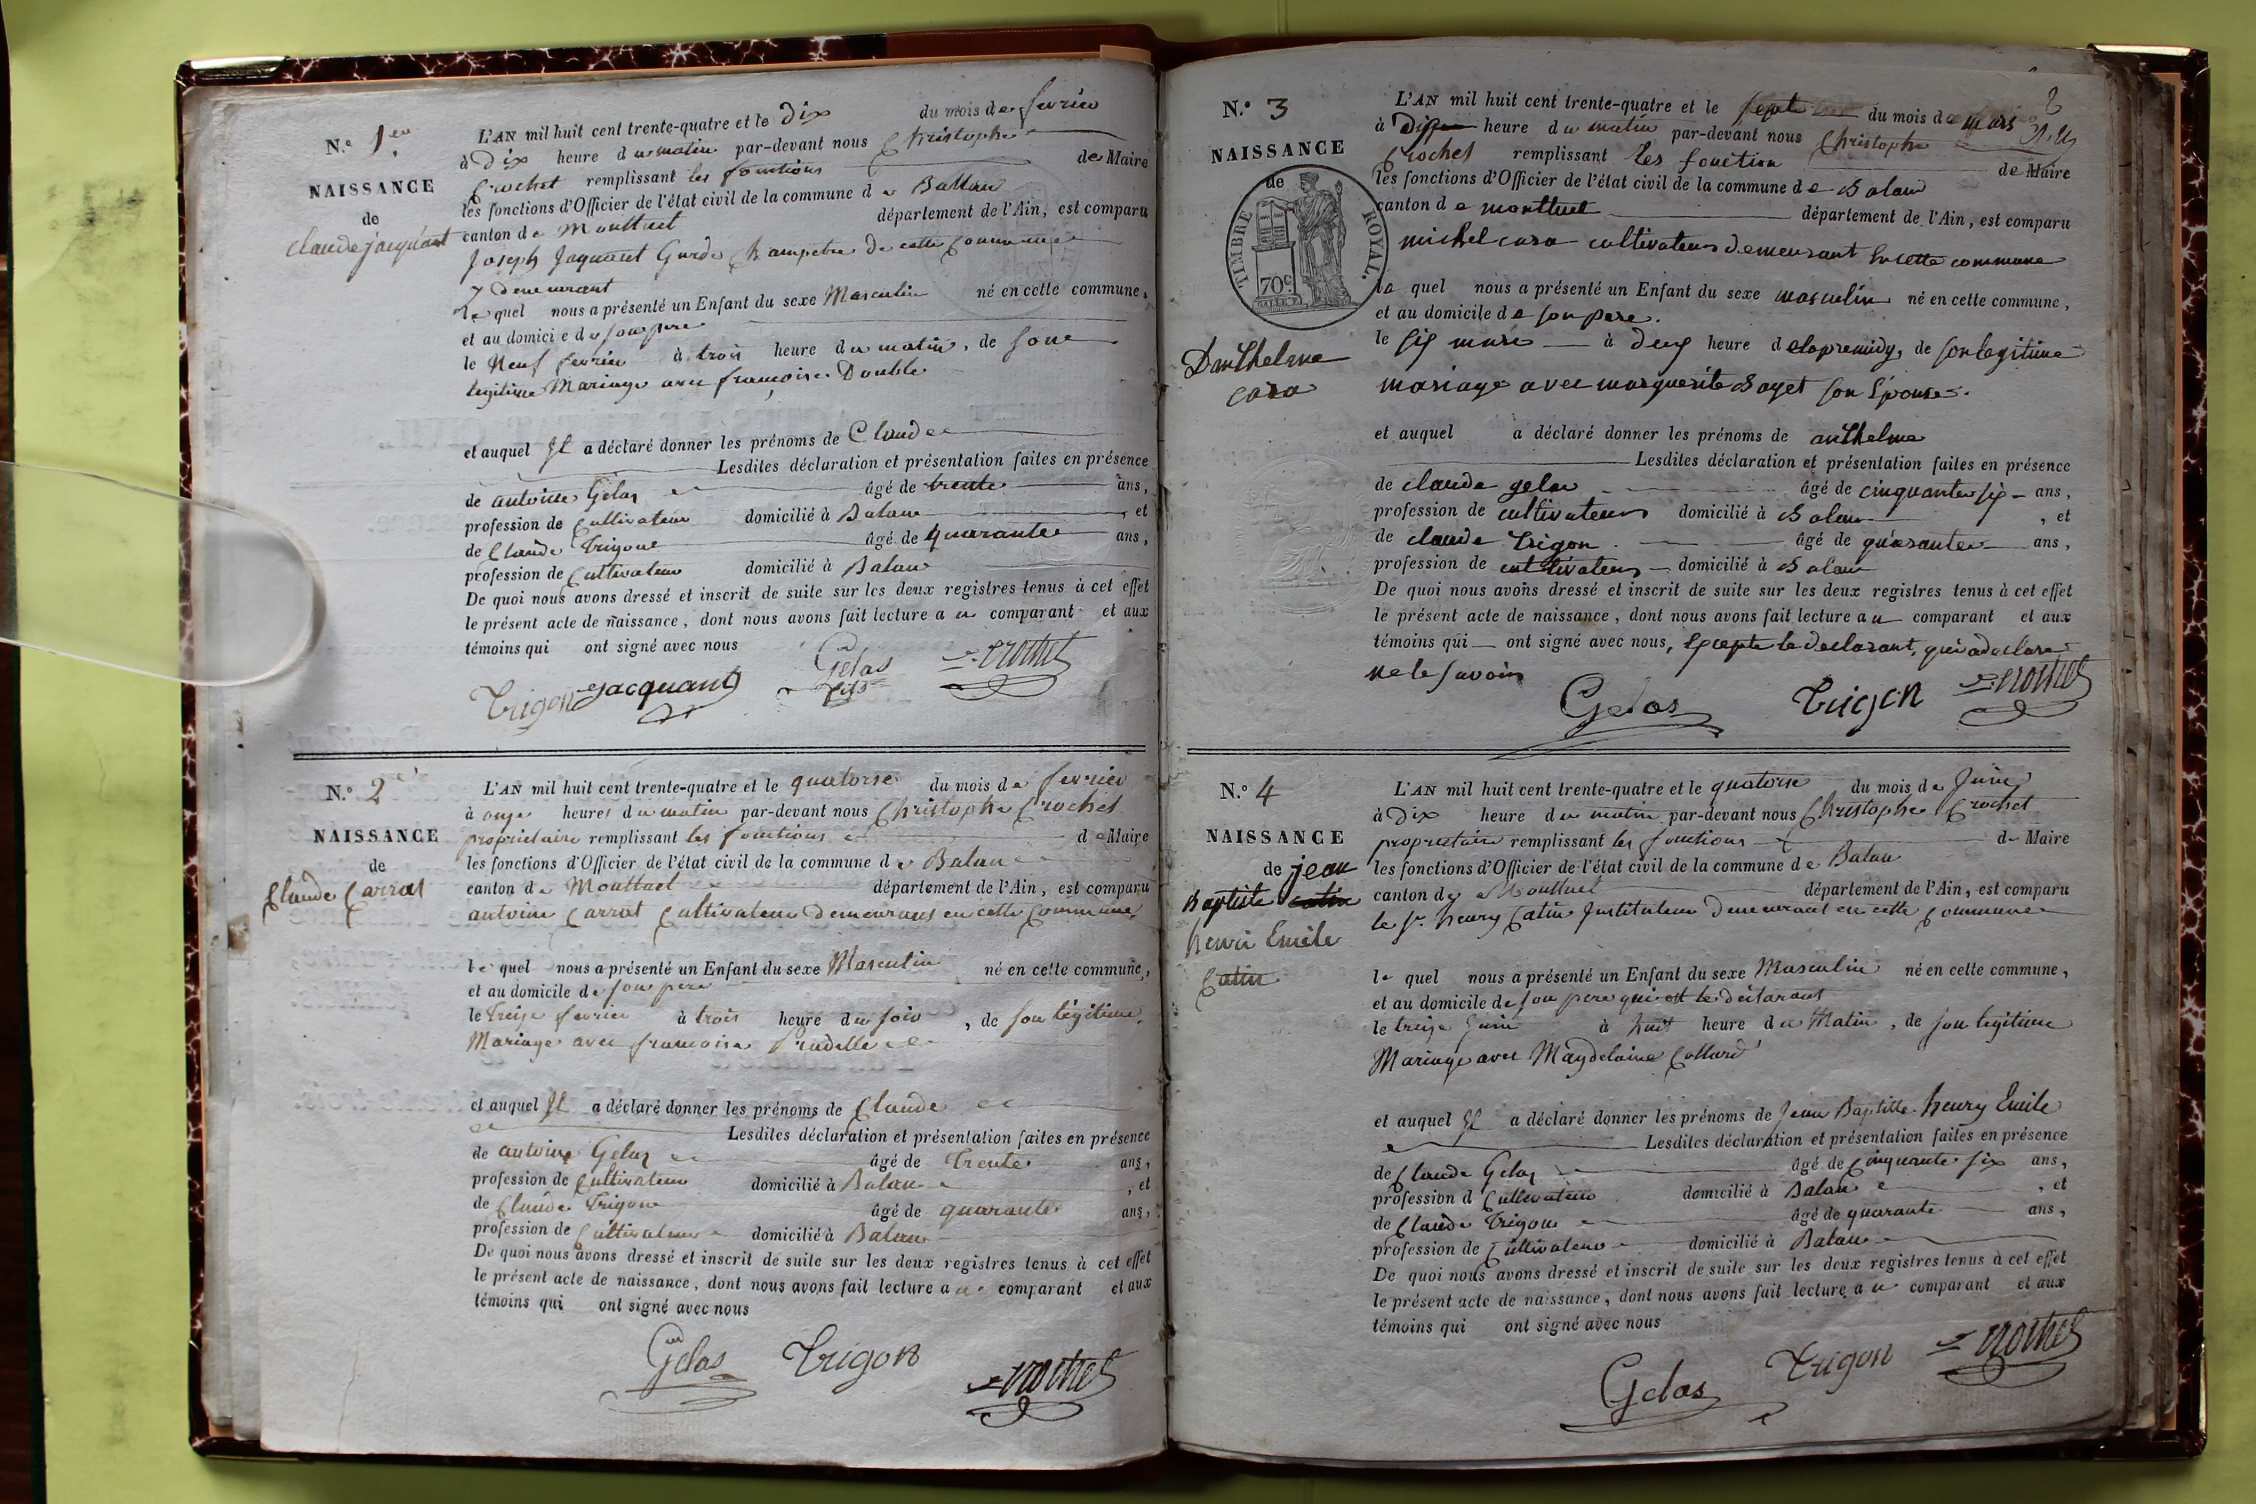 N.º 1er
NAISSANCE
de
Claude jacquant
L'AN mil huit cent trente-quatre et le Dix du mois de fevrier
à Dix heure du matin par-devant nous Christophe
Crochet remplissant les fonctions de Maire
les fonctions d'Officier de l'état civil de la commune de Ballan
canton de Montluel département de l'Ain, est comparu
Joseph Jaquant Garde Champetre de cette Commune
y demeurant
le quel nous a présenté un Enfant du sexe Masculin né en cette commune,
et au domicile de son pere
le Neuf fevrier à trois heure du matin, de son
legitime Mariage avec françoise Double
et auquel Il a déclaré donner les prénoms de Claude
Lesdites déclaration et présentation faites en présence
de antoine Gelas âgé de trente ans,
profession de Cultivateur domicilié à Balan et
de Claude Trigon âgé de quarante ans,
profession de Cultivateur domicilié à Balan
De quoi nous avons dressé et inscrit de suite sur les deux registres tenus à cet effet
le présent acte de naissance, dont nous avons fait lecture au comparant et aux
témoins qui ont signé avec nous
Trigon Jacquant Gelas fils Crochet
N.º 2
NAISSANCE
de
Claude Carrat
L'AN mil huit cent trente-quatre et le quatorse du mois de fevrier
à onze heures du matin par-devant nous Christophe Crochet
proprietaire remplissant les fonctions de Maire
les fonctions d'Officier de l'état civil de la commune de Balan
canton de Montluel département de l'Ain, est comparu
antoine Carrat Cultivateur demeurant en cette Commune
le quel nous a présenté un Enfant du sexe Masculin né en cette commune,
et au domicile de son pere
le Treize fevrier à trois heure du soir, de son légitime
Mariage avec francoise Prudelle
et auquel Il a déclaré donner les prénoms de Claude
Lesdites déclaration et présentation faites en présence
de antoine Gelas âgé de Trente ans,
profession de Cultivateur domicilié à Balan, et
de Claude Trigon âgé de quarante ans,
profession de Cultivateur domicilié à Balan
De quoi nous avons dressé et inscrit de suite sur les deux registres tenus à cet effet
le présent acte de naissance, dont nous avons fait lecture au comparant et aux
témoins qui ont signé avec nous
Gelas Trigon Crochet
2
N.º 3
NAISSANCE
de
TIMBRE ROYAL.
70c
Danthelme
cara
L'AN mil huit cent trente-quatre et le sept du mois de mars
à Dix heure du matin par-devant nous Christophe
Crochet remplissant les fonction de Maire
les fonctions d'Officier de l'état civil de la commune de Balan
canton de montluel département de l'Ain, est comparu
michel cara cultivateur demeurant en cette commune
le quel nous a présenté un Enfant du sexe masculin né en cette commune,
et au domicile de son pere.
le six mars à deux heure de lapremidy, de son legitime
mariage avec marguerite Boyet son Epouse.
et auquel a déclaré donner les prénoms de anthelme
Lesdites déclaration et présentation faites en présence
de claude gelas âgé de cinquante six ans,
profession de cultivateur domicilié à Balan, et
de claude trigon âgé de quarante ans,
profession de cultivateur domicilié à Balan
De quoi nous avons dressé et inscrit de suite sur les deux registres tenus à cet effet
le présent acte de naissance, dont nous avons fait lecture au comparant et aux
témoins qui ont signé avec nous, Excepte le declarant, qui a declare
ne le savoir
Gelas Trigon Crochet
N.º 4
NAISSANCE
de jean
Baptiste catin
henri Emile
Catin
L'AN mil huit cent trente-quatre et le quatorse du mois de Juin
à Dix heure du matin par-devant nous Christophe Crochet
proprietaire remplissant les fonctions de Maire
les fonctions d'Officier de l'état civil de la commune de Balan
canton de Montluel département de l'Ain, est comparu
le Sr. henry Catin Instituteur demeurant en cette Commune
le quel nous a présenté un Enfant du sexe Masculin né en cette commune,
et au domicile de son pere qui est le déclarant
le treize Juin à huit heure du Matin, de son legitime
Mariage avec Magdelaine Collard
et auquel Il a déclaré donner les prénoms de Jean Baptiste henry Emile
Lesdites déclaration et présentation faites en présence
de Claude Gelas âgé de Cinquante six ans,
profession d Cultivateur domicilié à Balan, et
de Claude Trigon âgé de quarante ans,
profession de Cultivateur domicilié à Balan
De quoi nous avons dressé et inscrit de suite sur les deux registres tenus à cet effet
le présent acte de naissance, dont nous avons fait lecture au comparant et aux
témoins qui ont signé avec nous
Gelas Trigon Crochet